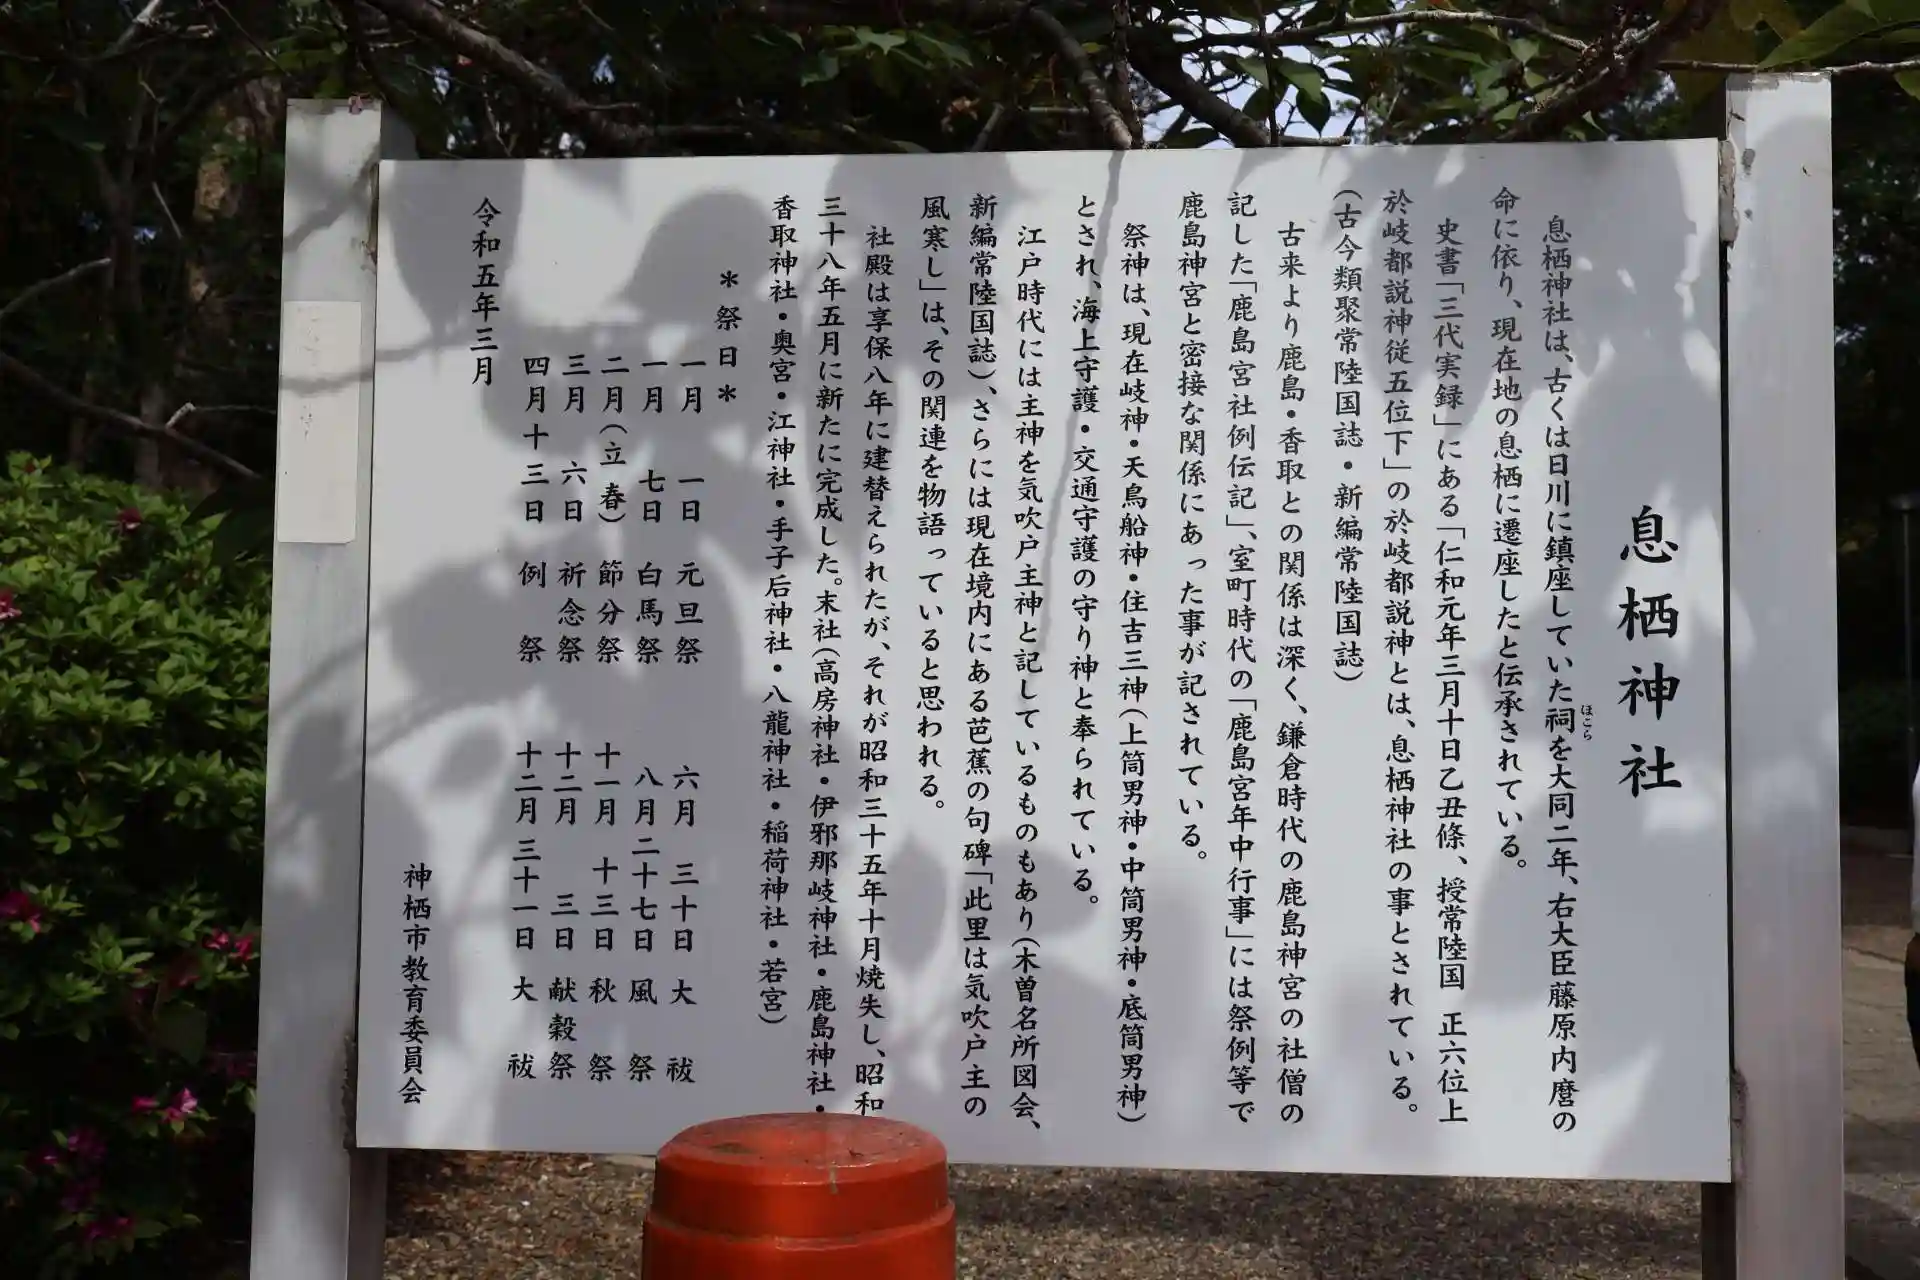 息栖神社
息栖神社は、古くは日川に鎮座していた祠を大同二年、右大臣藤原内麿の
ほこら
命に依り、現在地の息栖に遷座したと伝承されている。
史書「三代実録」にある「仁和元年三月十日乙丑條、授常陸国 正六位上
於岐都説神従五位下」の於岐都説神とは、息栖神社の事とされている。
(古今類聚常陸国誌・新編常陸国誌)
古来より鹿島・香取との関係は深く、鎌倉時代の鹿島神宮の社僧の
記した「鹿島宮社例伝記」、室町時代の「鹿島宮年中行事」には祭例等で
鹿島神宮と密接な関係にあった事が記されている。
祭神は、現在岐神・天鳥船神・住吉三神(上筒男神・中筒男神・底筒男神)
とされ、海上守護・交通守護の守り神と奉られている。
江戸時代には主神を気吹戸主神と記しているものもあり(木曽名所図会、
新編常陸国誌)、さらには現在境内にある芭蕉の句碑「此里は気吹戸主の
風寒し」は、その関連を物語っていると思われる。
社殿は享保八年に建替えられたが、それが昭和三十五年十月焼失し、昭和
三十八年五月に新たに完成した。末社(高房神社・伊邪那岐神社・鹿島神社・
香取神社・奥宮・江神社・手子后神社・八龍神社・稲荷神社・若宮)
＊祭日＊
一月 一日 元旦祭 六月 三十日 大祓
一月 七日 白馬祭 八月二十七日 風祭
二月(立春) 節分祭 十一月 十三日 秋祭
三月 六日 祈念祭 十二月 三日 献穀祭
四月十三日 例祭 十二月三十一日 大祓
令和五年三月
神栖市教育委員会